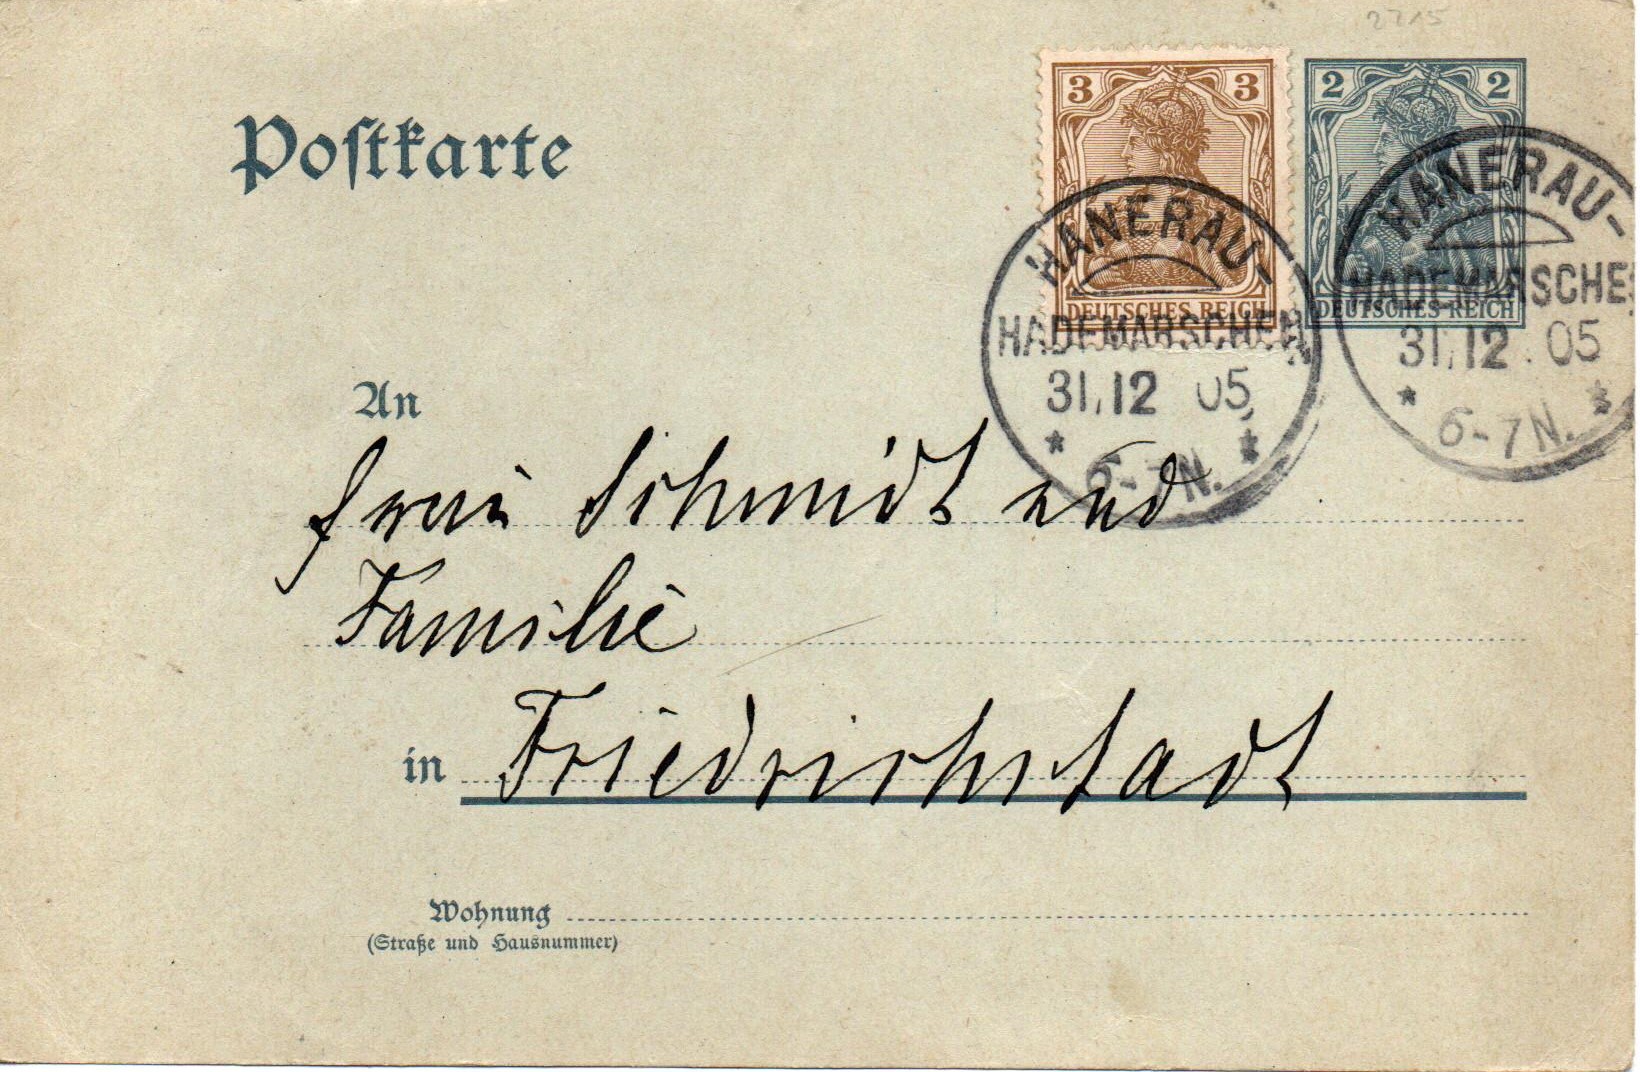 2715
3 3
2 2
Postkarte
DEUTSCHES REICH
DEUTSCHES REICH
HANERAU-
HADEMARSCHEN
31.12 05
* 6-7N. *
HANERAU-
HADEMARSCHE
31.12.05
* 6-7N. *
An
Frau Schmidt und
Familie
in Friedrichstadt
Wohnung
(Straße und Hausnummer)